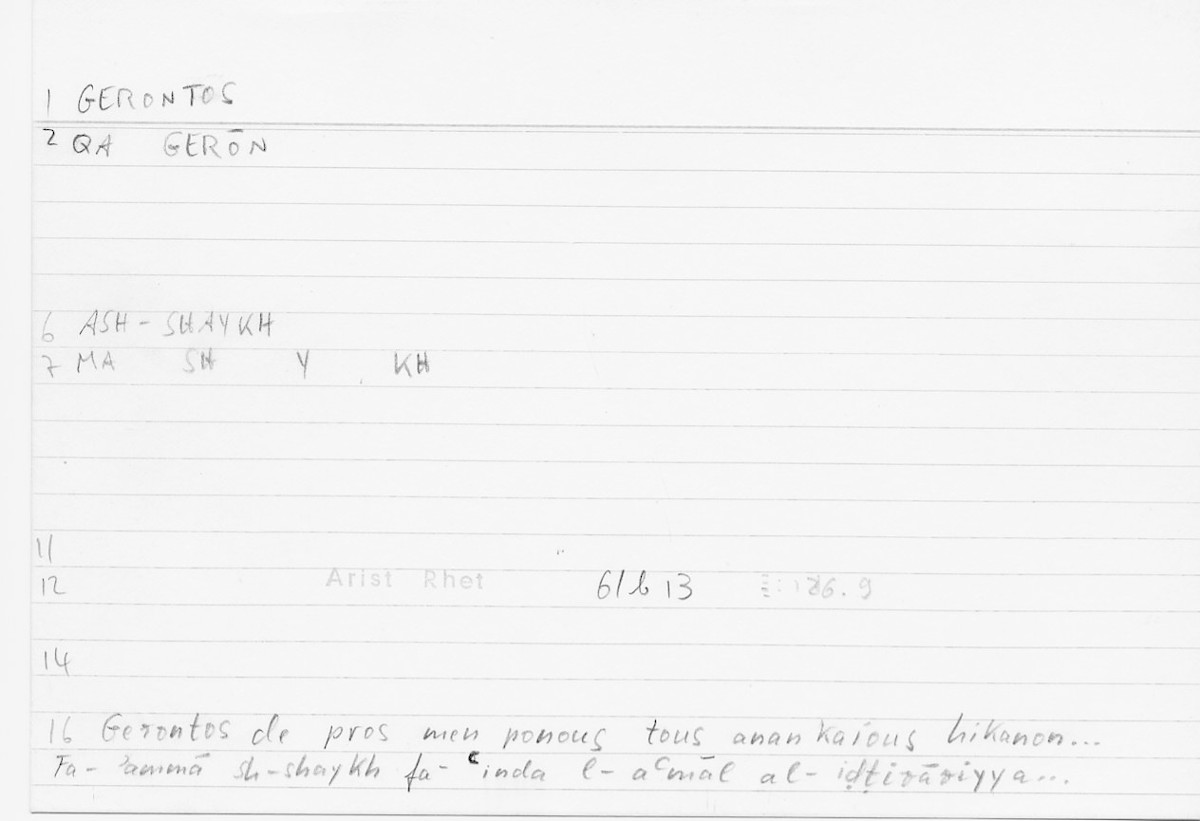 1 GERONTOS
2 QA GERŌN
6 ASH-SHAYKH
7 MA SH Y KH
11
12 Arist Rhet 61b13
14
16 Gerontos de pros men ponous tous anankaious hikanon...
Fa-ʾammā sh-shaykh fa-ʿinda l-aʿmāl al-iḍṭirāriyya...